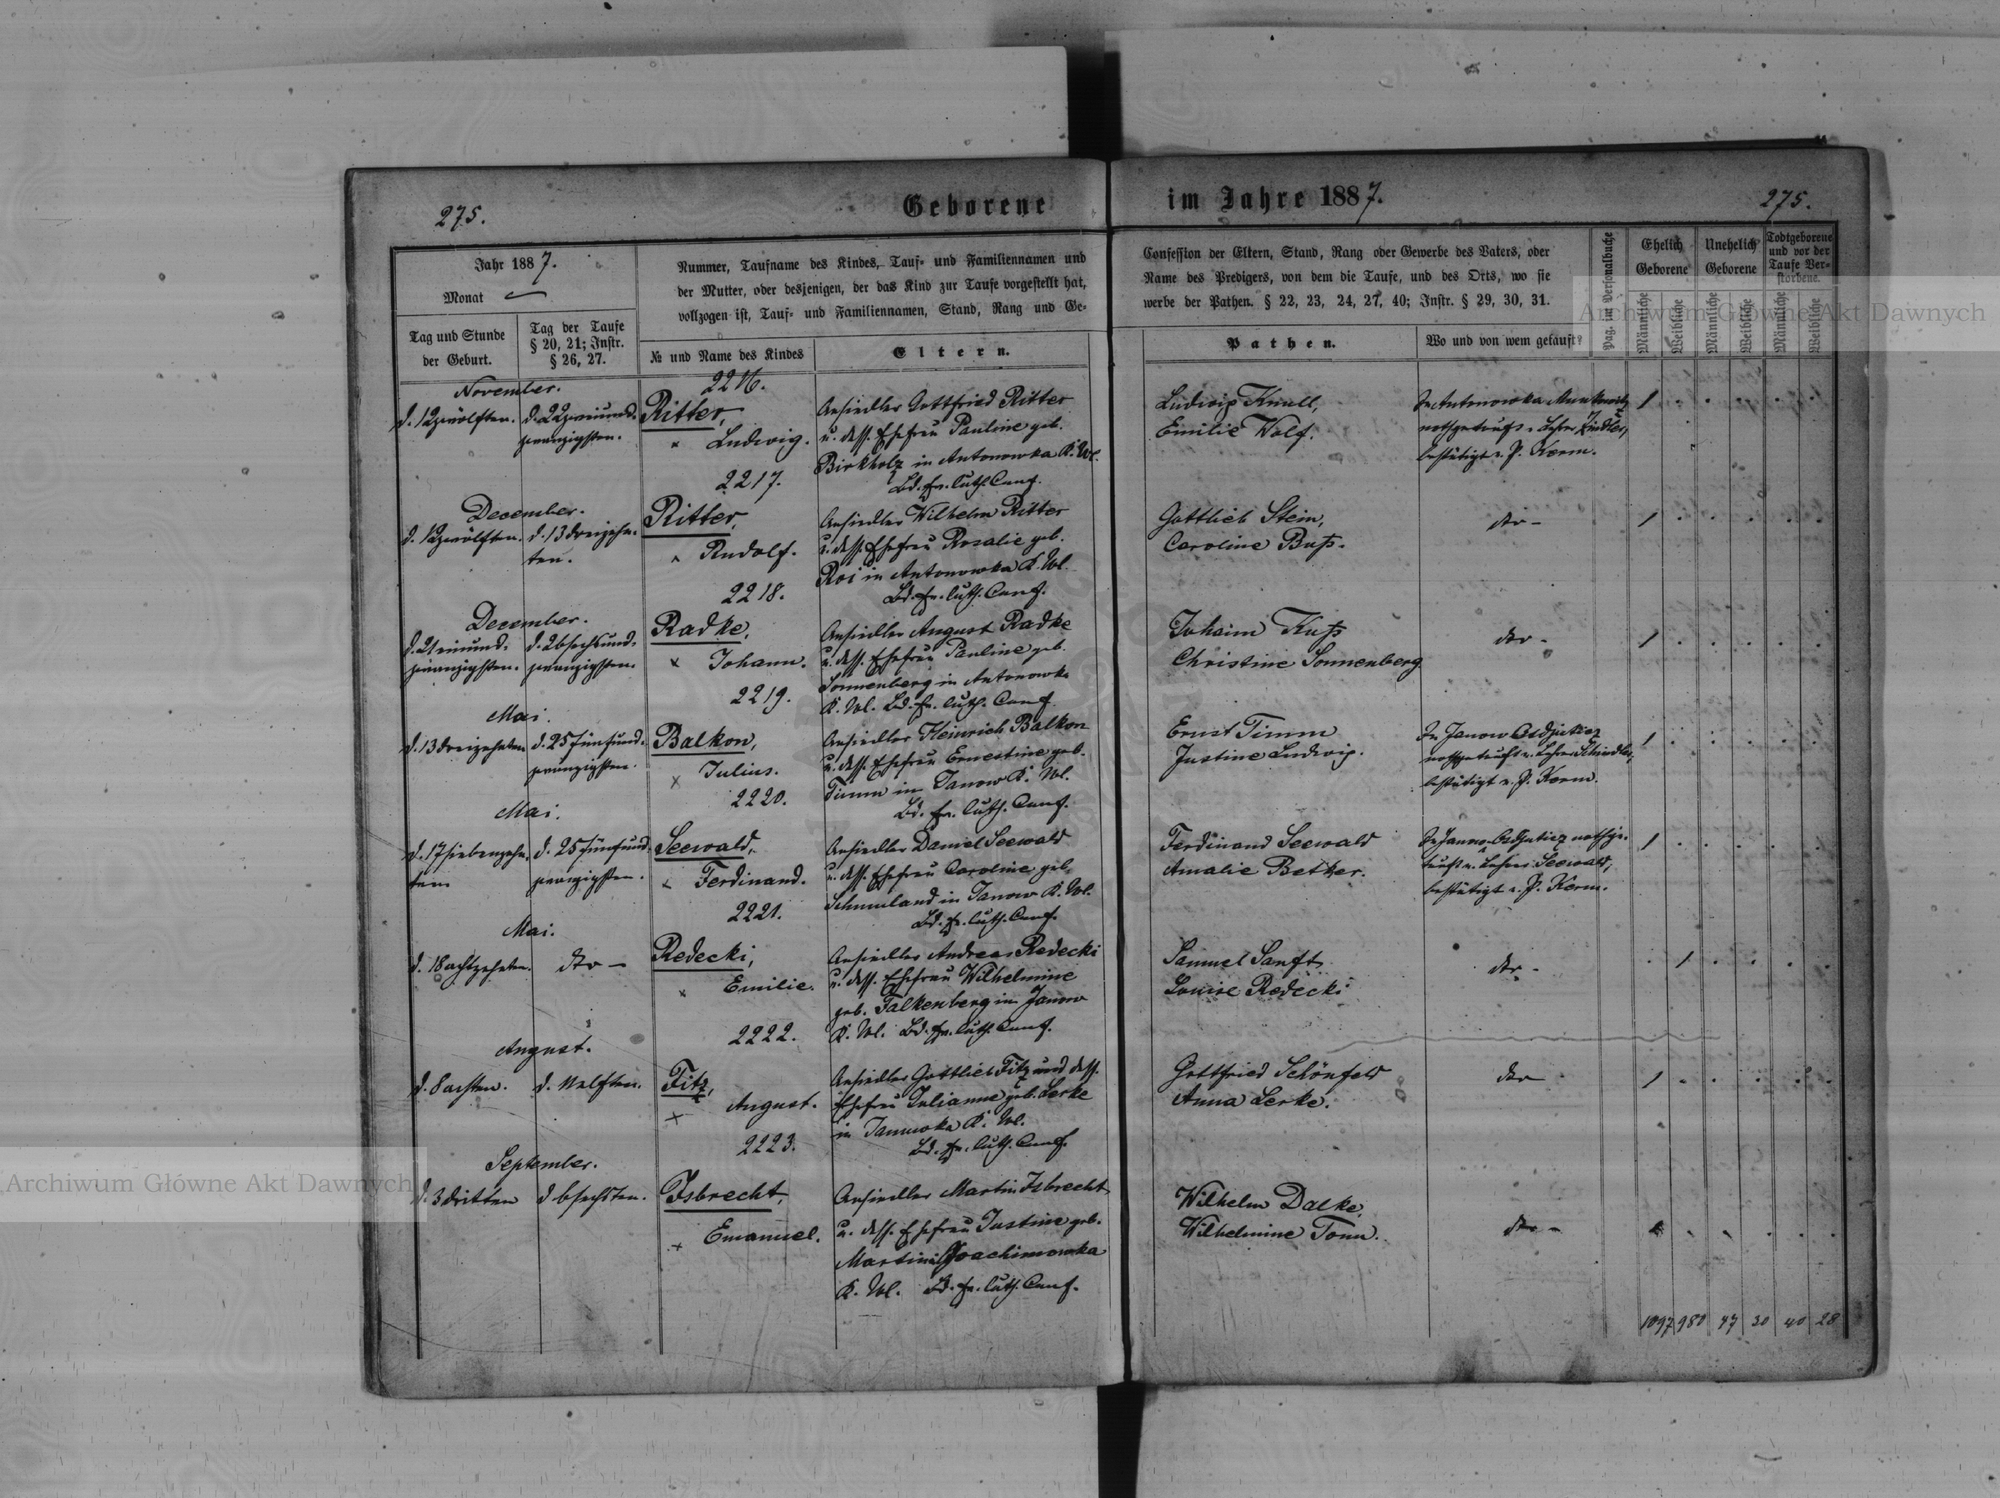 275.
Geborene
im Jahre 1887.
275.
Jahr 1887.
Monat
Tag und Stunde
der Geburt.
Tag der Taufe
§ 20, 21; Instr.
§ 26, 27.
Nummer, Taufname des Kindes, Tauf- und Familiennamen und
der Mutter, oder desjenigen, der das Kind zur Taufe vorgestellt hat,
vollzogen ist, Tauf- und Familiennamen, Stand, Rang und Ge-
№ und Name des Kindes
Eltern.
Confession der Eltern, Stand, Rang oder Gewerbe des Vaters, oder
Name des Predigers, von dem die Taufe, und des Orts, wo sie
werbe der Pathen. § 22, 23, 24, 27, 40; Instr. § 29, 30, 31.
Pathen.
Wo und von wem getauft?
Pag. im Personalbuche
Ehelich
Geborene
Unehelich
Geborene
Todtgeborene
und vor der
Taufe Ver-
storbene.
Männliche
Weibliche
Männliche
Weibliche
Männliche
Weibliche
November.
d. 12 zwölften.
d. 22 zweiund-
zwanzigsten.
2216.
Ritter,
× Ludwig.
Ansiedler Gottfried Ritter
u. dess. Ehefrau Pauline geb.
Birkholz in Antonowka K. Wl.
Bd. ev. luth. Conf.
Ludwig Knull,
Emilie Wolf.
In Antonowka
nothgetauft v. Lehrer
bestätigt v. P. Kerm.
1
December.
d. 12 zwölften.
d. 13 dreizehn-
ten.
2217.
Ritter,
× Rudolf.
Ansiedler Wilhelm Ritter
u. dess. Ehefrau Rosalie geb.
Roi in Antonowka K. Wl.
Bd. ev. luth. Conf.
Gottlieb Stein,
Caroline Buß.
dto –
1
December.
d. 21 einund-
zwanzigsten.
d. 26 sechsund-
zwanzigsten.
2218.
Radke,
× Johann.
Ansiedler August Radke
u. dess. Ehefrau Pauline geb.
Sonnenberg in Antonowka
K. Wl. Bd. ev. luth. Conf.
Johann Kuß
Christine Sonnenberg
dto –
1
Mai.
d. 13 dreizehnten
d. 25 fünfund-
zwanzigsten.
2219.
Balkon,
× Julius.
Ansiedler Heinrich Balkon
u. dess. Ehefrau Ernestine geb.
Timm in Janow K. Wl.
Bd. ev. luth. Conf.
Ernst Timm
Justine Ludwig.
In Janow
nothgetauft v. Lehrer Schindler,
bestätigt v. P. Kerm.
1
Mai.
d. 17 siebenzehn-
ten
d. 25 fünfund-
zwanzigsten.
2220.
Seewald,
× Ferdinand.
Ansiedler Daniel Seewald
u. dess. Ehefrau Caroline geb.
Schmuland in Janow K. Wl.
Bd. ev. luth. Conf.
Ferdinand Seewald
Amalie Betker.
In Janow nothge-
tauft v. Lehrer Seewald,
bestätigt v. P. Kerm.
1
Mai.
d. 18 achtzehnten.
dto –
2221.
Redecki,
× Emilie.
Ansiedler Andreas Redecki
u. dess. Ehefrau Wilhelmine
geb. Falkenberg in Janow
K. Wl. Bd. ev. luth. Conf.
Samuel Sanft
Louise Redecki
dto –
1
August.
d. 8 achten.
d. 11 elften.
2222.
Fitz,
× August.
Ansiedler Gottlieb Fitz und dess.
Ehefrau Julianne geb. Lerke
in K. Wl.
Bd. ev. luth. Conf.
Gottfried Schönfeld
Anna Lerke.
dto
1
September.
d. 3 dritten
d. 6 sechsten.
2223.
Isbrecht,
× Emanuel.
Ansiedler Martin Isbrecht
u. dess. Ehefrau Justine geb.
Martin in Joachimowka
K. Wl. Bd. ev. luth. Conf.
Wilhelm Dalke,
Wilhelmine Tonn.
dto –
1
1097 980 47 30 40 28
Archiwum Główne Akt Dawnych
Archiwum Główne Akt Dawnych